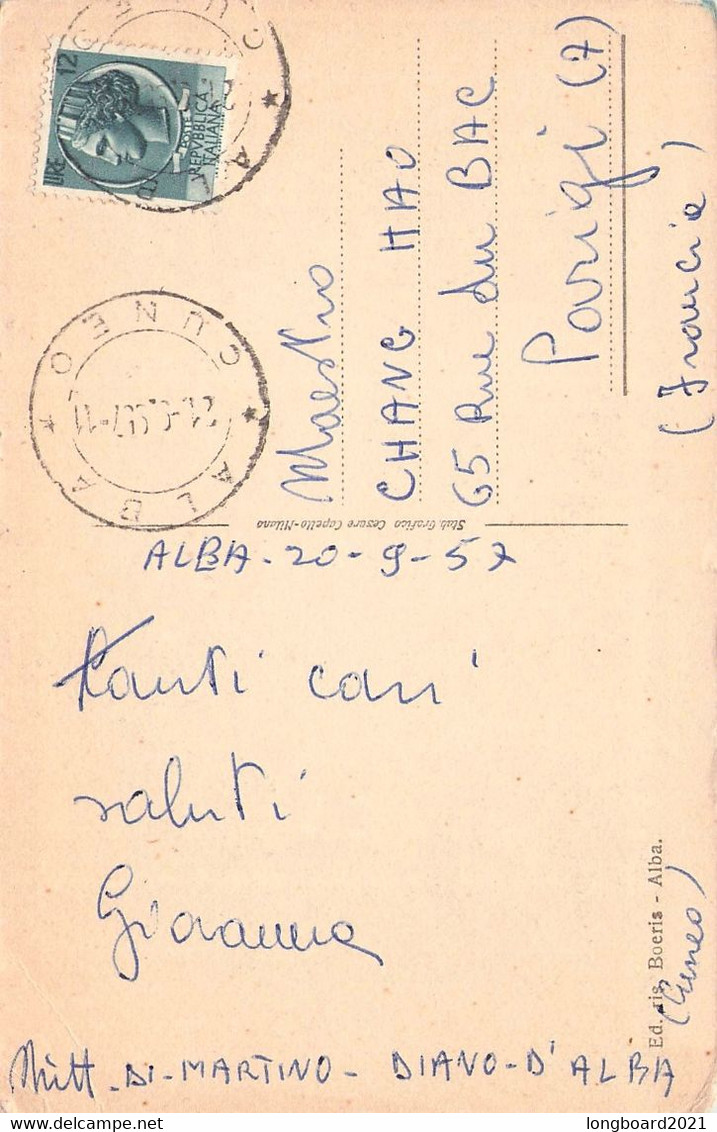 ALBA - 20 - 9 - 57
Tanti cari
saluti
Giovanna
Mitt - DI - MARTINO - DIANO - D'ALBA
(Cuneo)
Ed. ris. Boeris - Alba.
Stab. Grafico Cesare Capello - Milano
LIRE 12
POSTE
REPVBBLICA
ITALIANA
CUNEO
ALBA
Maestrio
CHANG HAO
65 Rue du BAC
Parigi (7)
(Francia)
longboard2021